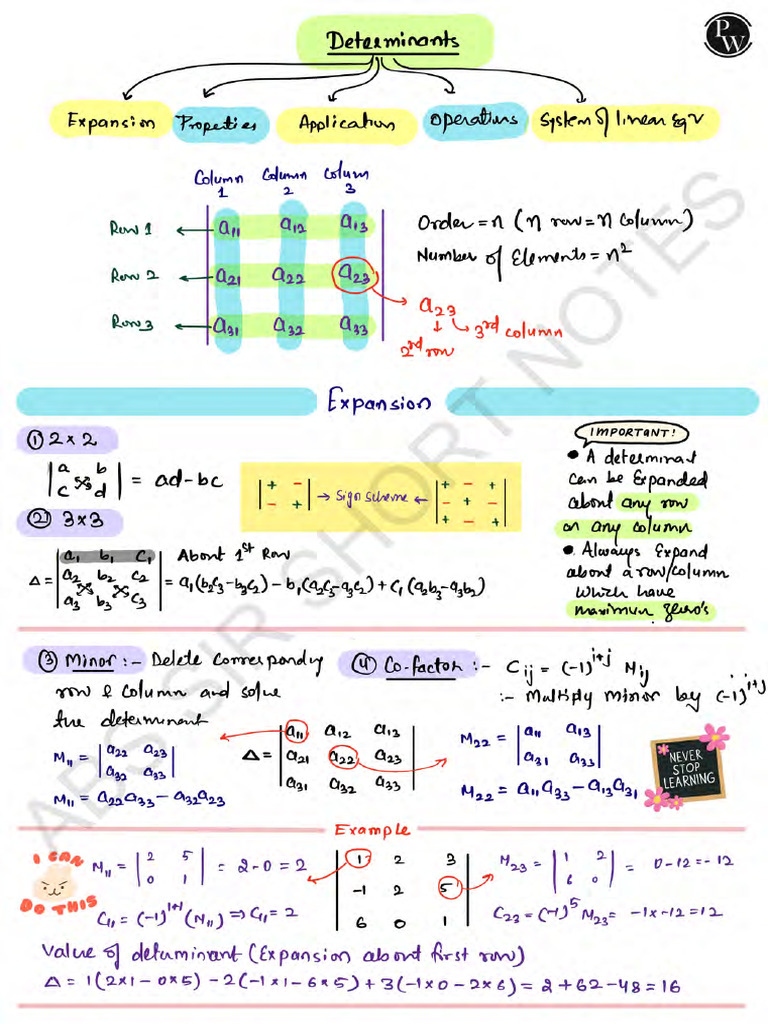 Determinants
PW
Expansion Properties Application Operations System of linear Eqn
Column 1 Column 2 Column 3
Row 1 ← a₁₁ a₁₂ a₁₃
Row 2 ← a₂₁ a₂₂ a₂₃
Row 3 ← a₃₁ a₃₂ a₃₃
Order = n (n row = n column)
Number of Elements = n²
a₂₃
3rd column
2nd row
Expansion
① 2×2
|a b; c d| = ad-bc
② 3×3
|+ -; - +| → Sign scheme ← |+ - +; - + -; + - +|
Δ = |a₁ b₁ c₁; a₂ b₂ c₂; a₃ b₃ c₃|
About 1st Row
= a₁(b₂c₃-b₃c₂) - b₁(a₂c₃-a₃c₂) + c₁(a₂b₃-a₃b₂)
IMPORTANT!
• A determinant
can be Expanded
about any row
or any column
• Always Expand
about a row/column
which have
maximum zero's
③ Minor :- Delete corresponding
row & column and solve
the determinant
M₁₁ = |a₂₂ a₂₃; a₃₂ a₃₃|
M₁₁ = a₂₂a₃₃ - a₃₂a₂₃
Δ = |a₁₁ a₁₂ a₁₃; a₂₁ a₂₂ a₂₃; a₃₁ a₃₂ a₃₃|
④ Co-factor :- Cᵢⱼ = (-1)^i+j Mᵢⱼ
:- Multiply minor by (-1)^i+j
M₂₂ = |a₁₁ a₁₃; a₃₁ a₃₃|
M₂₂ = a₁₁a₃₃ - a₁₃a₃₁
NEVER
STOP
LEARNING
Example
I CAN
DO THIS
M₁₁ = |2 5; 0 1| = 2-0 = 2
C₁₁ = (-1)^1+1 (M₁₁) ⇒ C₁₁ = 2
|1 2 3; -1 2 5; 6 0 1|
M₂₃ = |1 2; 6 0| = 0-12 = -12
C₂₃ = (-1)⁵ M₂₃ = -1×-12 = 12
Value of determinant (Expansion about first row)
Δ = 1(2×1-0×5) - 2(-1×1-6×5) + 3(-1×0-2×6) = 2+62-48 = 16
ABS SIR SHORT NOTES